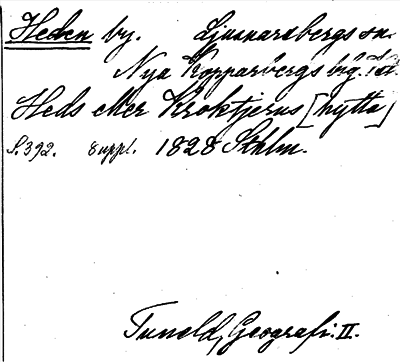 Heden by. Ljusnarsbergs sn.
Nya Kopparbergs brg.
Heds eller Kroktjerns [hytta]
S. 392. suppl. 1828 Sthlm.
Tuneld, Geografi. II.